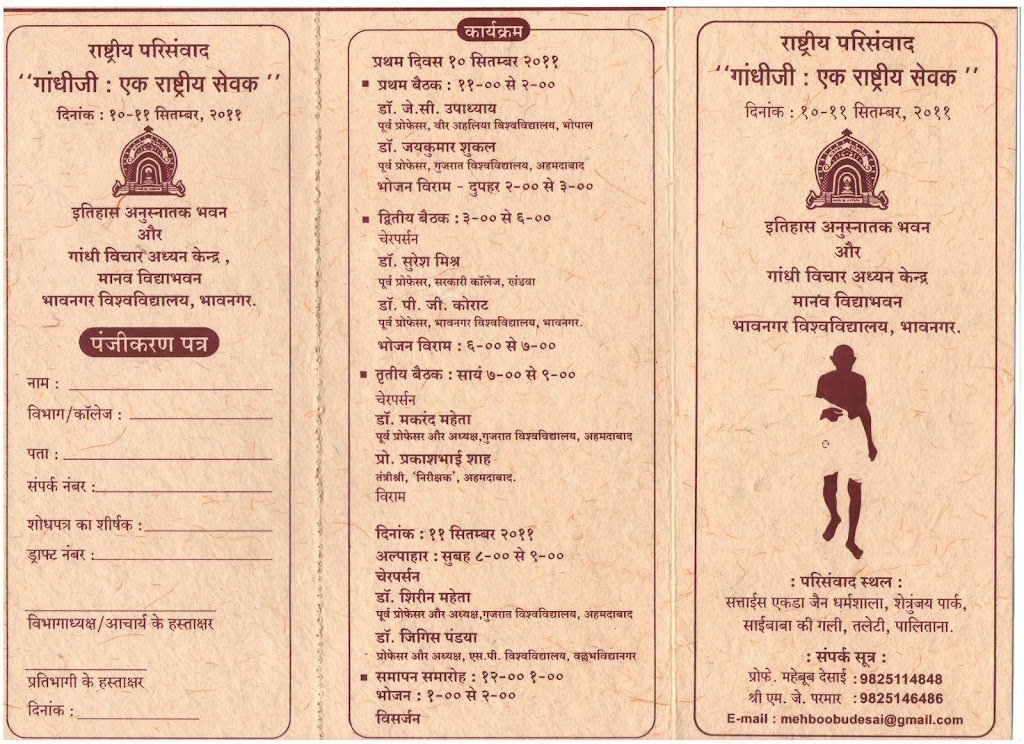 राष्ट्रीय परिसंवाद
‘‘गांधीजी : एक राष्ट्रीय सेवक ’’
दिनांक : १०-११ सितम्बर, २०११
इतिहास अनुस्नातक भवन
और
गांधी विचार अध्यन केन्द्र ,
मानव विद्याभवन
भावनगर विश्वविद्यालय, भावनगर.
पंजीकरण पत्र
नाम :
विभाग/कॉलेज :
पता :
संपर्क नंबर :
शोधपत्र का शीर्षक :
ड्राफ्ट नंबर :
विभागाध्यक्ष/आचार्य के हस्ताक्षर
प्रतिभागी के हस्ताक्षर
दिनांक :
कार्यक्रम
प्रथम दिवस १० सितम्बर २०११
प्रथम बैठक : ११-०० से २-००
डॉ. जे.सी. उपाध्याय
पूर्व प्रोफेसर, वीर अहलिया विश्वविद्यालय, भोपाल
डॉ. जयकुमार शुकल
पूर्व प्रोफेसर, गुजरात विश्वविद्यालय, अहमदाबाद
भोजन विराम - दुपहर २-०० से ३-००
द्वितीय बैठक : ३-०० से ६-००
चेरपर्सन
डॉ. सुरेश मिश्र
पूर्व प्रोफेसर, सरकारी कॉलेज, खंडवा
डॉ. पी. जी. कोराट
पूर्व प्रोफेसर, भावनगर विश्वविद्यालय, भावनगर.
भोजन विराम : ६-०० से ७-००
तृतीय बैठक : सायं ७-०० से ९-००
चेरपर्सन
डॉ. मकरंद महेता
पूर्व प्रोफेसर और अध्यक्ष,गुजरात विश्वविद्यालय, अहमदाबाद
प्रो. प्रकाशभाई शाह
तंत्रीश्री, ‘निरीक्षक’, अहमदाबाद.
विराम
दिनांक : ११ सितम्बर २०११
अल्पाहार : सुबह ८-०० से ९-००
चेरपर्सन
डॉ. शिरीन महेता
पूर्व प्रोफेसर और अध्यक्ष,गुजरात विश्वविद्यालय, अहमदाबाद
डॉ. जिगिस पंडया
प्रोफेसर और अध्यक्ष, एस.पी. विश्वविद्यालय, वल्लभविद्यानगर
समापन समारोह : १२-०० १-००
भोजन : १-०० से २-००
विसर्जन
राष्ट्रीय परिसंवाद
‘‘गांधीजी : एक राष्ट्रीय सेवक ’’
दिनांक : १०-११ सितम्बर, २०११
इतिहास अनुस्नातक भवन
और
गांधी विचार अध्यन केन्द्र
मानव विद्याभवन
भावनगर विश्वविद्यालय, भावनगर.
: परिसंवाद स्थल :
सत्ताईस एकडा जैन धर्मशाला, शेत्रुंजय पार्क,
साईबाबा की गली, तलेटी, पालिताना.
: संपर्क सूत्र :
प्रोफे. महेबूब देसाई : 9825114848
श्री एम. जे. परमार : 9825146486
E-mail : mehboobudesai@gmail.com